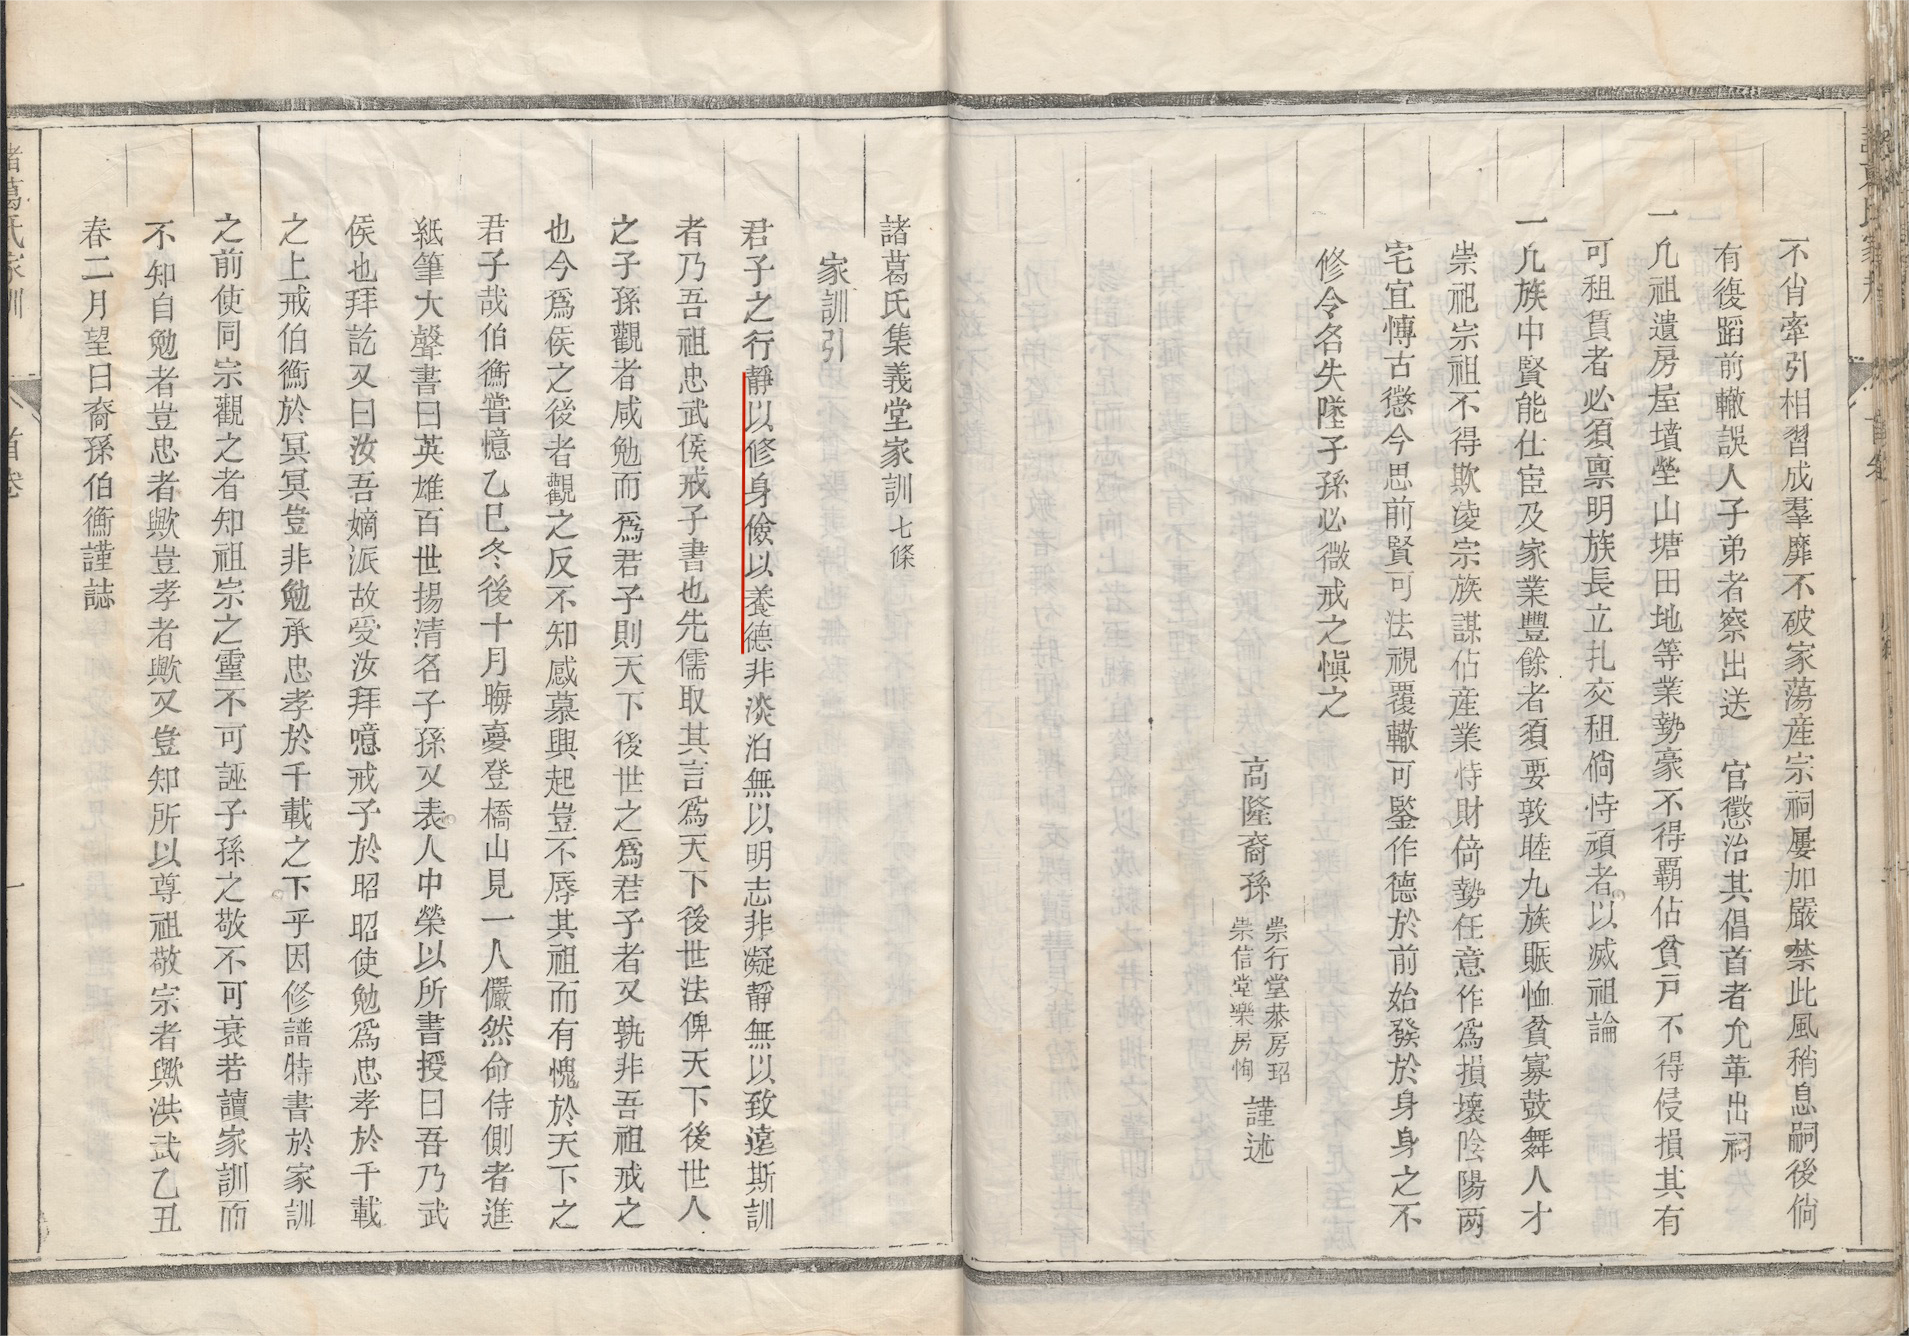 不肖牽引相習成羣靡不破家蕩産宗祠屢加嚴禁此風稍息嗣後倘
有復蹈前轍誤人子弟者察出送　官懲治其倡首者允革出祠
一凢祖遺房屋墳塋山塘田地等業勢豪不得覇佔貧戸不得侵損其有
可租賃者必須禀明族長立扎交租倘恃頑者以滅祖論
一凢族中賢能仕宦及家業豐餘者須要敦睦九族賑恤貧寡鼓舞人才
崇祀宗祖不得欺凌宗族謀佔産業恃財倚勢任意作爲損壞陰陽两
宅宜愽古懲今思前賢可法視覆轍可鑒作德於前始發於身身之不
修令名失墜子孫必微戒之愼之
高隆裔孫　崇行堂恭房玿
崇信堂樂房恂　謹述
諸葛氏集義堂家訓 七條
家訓引
君子之行靜以修身儉以養德非淡泊無以明志非凝靜無以致遠斯訓
者乃吾祖忠武侯戒子書也先儒取其言爲天下後世法俾天下後世人
之子孫觀者咸勉而爲君子則天下後世之爲君子者又孰非吾祖戒之
也今爲侯之後者觀之反不知感慕興起豈不辱其祖而有愧於天下之
君子哉伯衡嘗憶乙巳冬後十月晦夢登橋山見一人儼然命侍側者進
紙筆大聲書曰英雄百世揚清名子孫又表人中榮以所書授曰吾乃武
侯也拜訖又曰汝吾嫡派故受汝拜噫戒子於昭昭使勉爲忠孝於千載
之上戒伯衡於冥冥豈非勉承忠孝於千載之下乎因修譜特書於家訓
之前使同宗觀之者知祖宗之靈不可誣子孫之敬不可衰若讀家訓而
不知自勉者豈忠者歟豈孝者歟又豈知所以尊祖敬宗者歟洪武乙丑
春二月望日裔孫伯衡謹誌
諸葛氏家訓
首卷
一